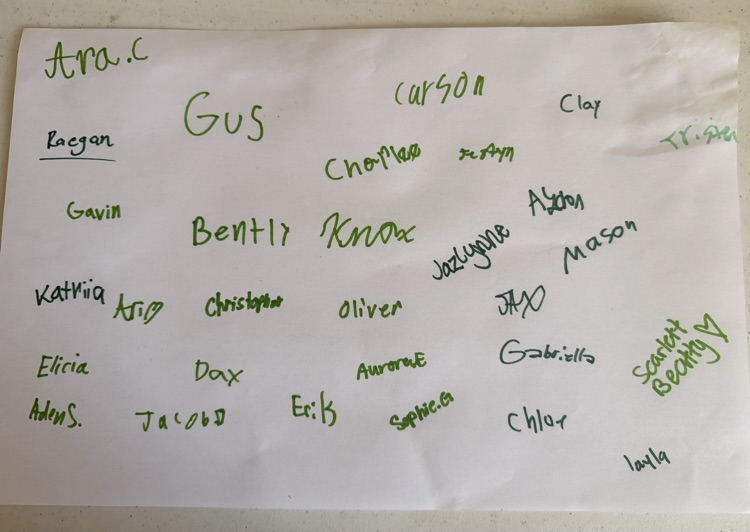 Ara.C
Gus
Carson
Clay
Raegan
Gavin
Bently
Knox
Jazlynne
Mason
Katriia
Ari♡
Christopher
Oliver
JAX
Elicia
Dax
Aurora E
Gabriella
Scarlett
Beatty ♡
Aden S.
Jacob D
Erik
Sophie.G
Chloe
layla